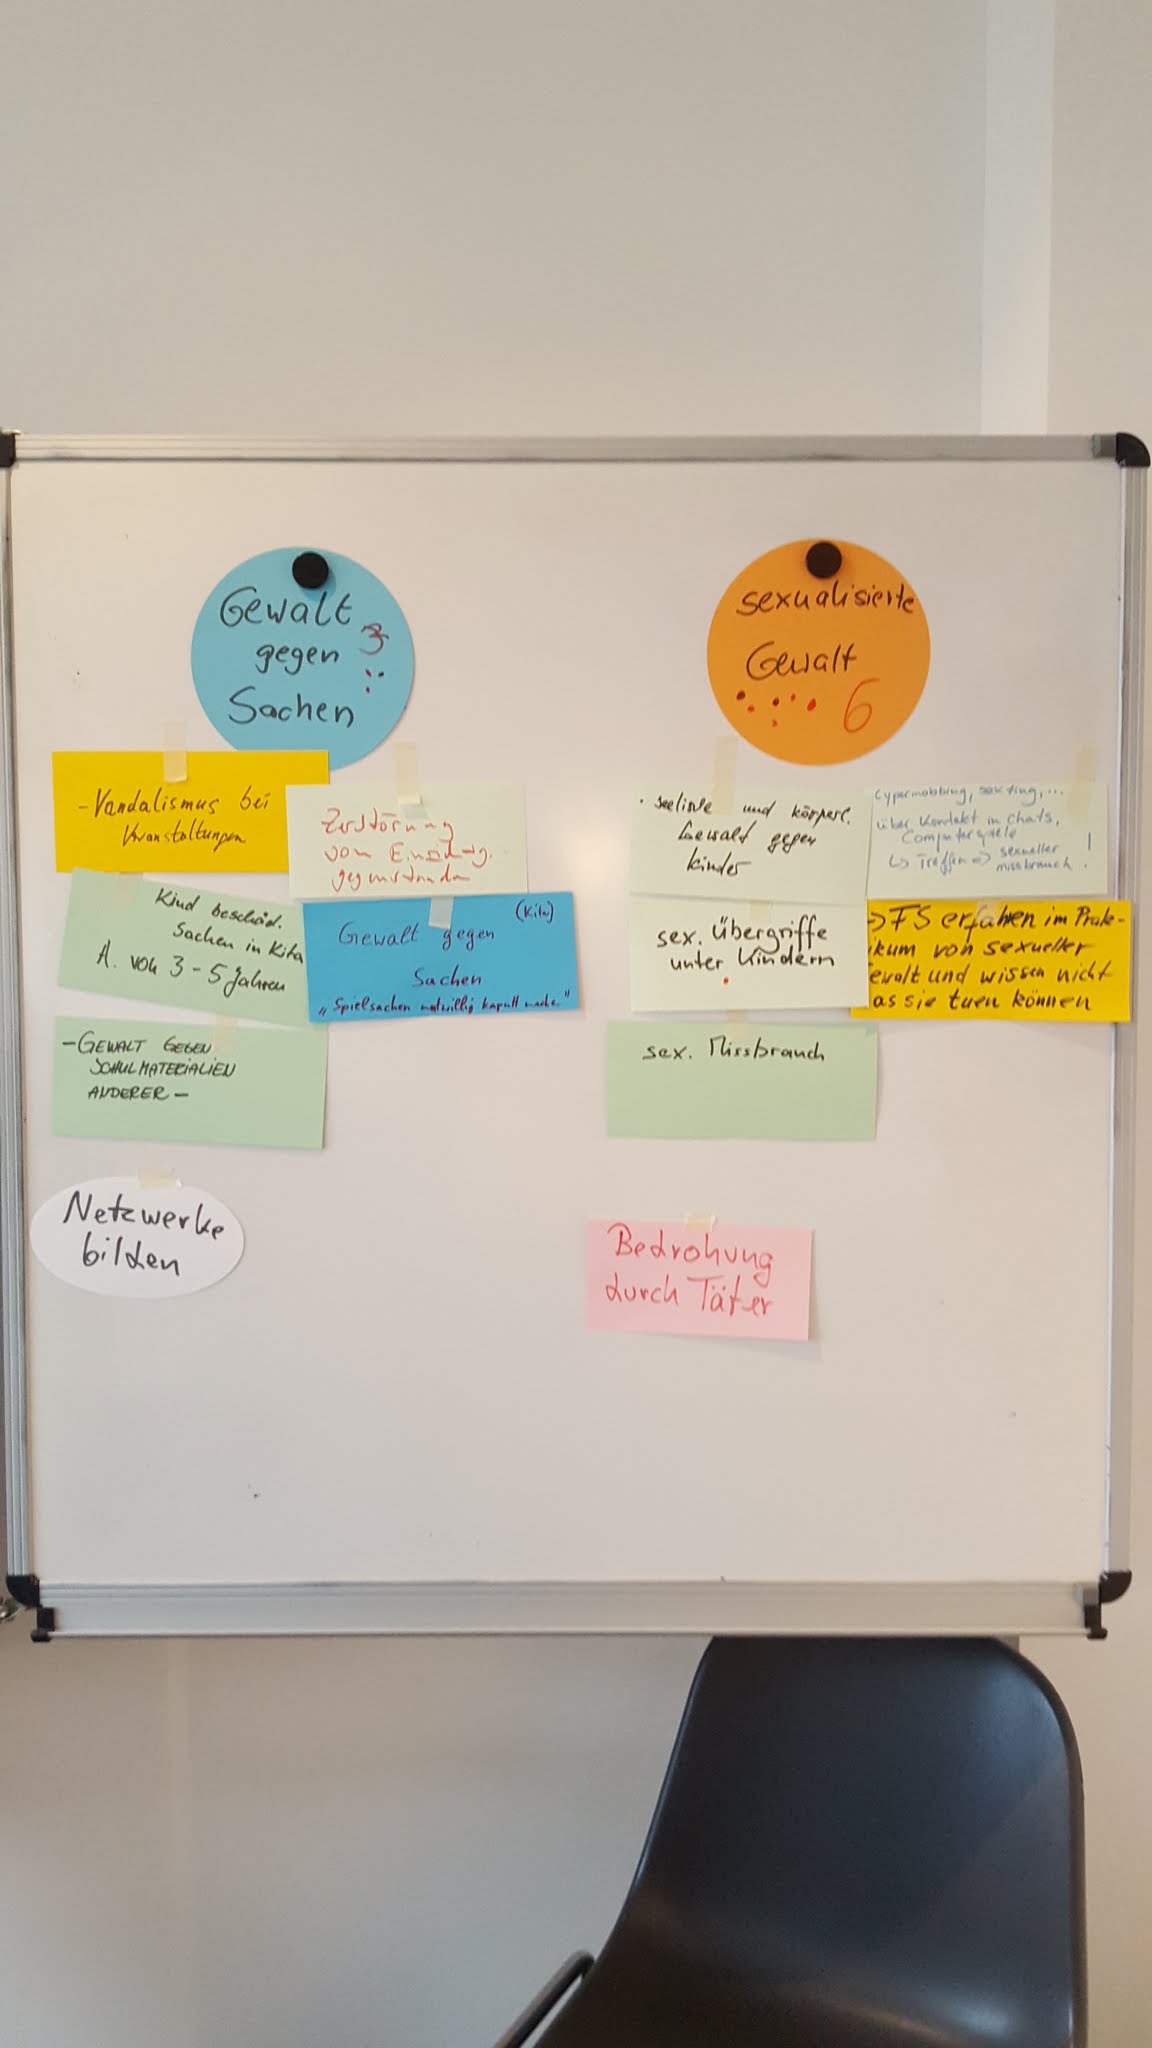 Gewalt
gegen 3
Sachen
- Vandalismus bei
Veranstaltungen
Zerstörung
von
Kind beschäd.
Sachen in Kita
A. von 3-5 Jahren
(Kita)
Gewalt gegen
Sachen
"Spielsachen mutwillig kaputt machen"
- GEWALT GEGEN
SCHULMATERIALIEN
ANDERER -
Netzwerke
bilden
sexualisierte
Gewalt
6
und körperl.
Gewalt gegen
Kinder
Cypermobbing, sexting, ...
über Kontakt in Chats,
Computerspiele
↳ Treffen => sexueller
missbrauch !
sex. Übergriffe
unter Kindern
FS erfahren im Prak-
ikum von sexueller
ewalt und wissen nicht
as sie tuen können
sex. Missbrauch
Bedrohung
durch Täter